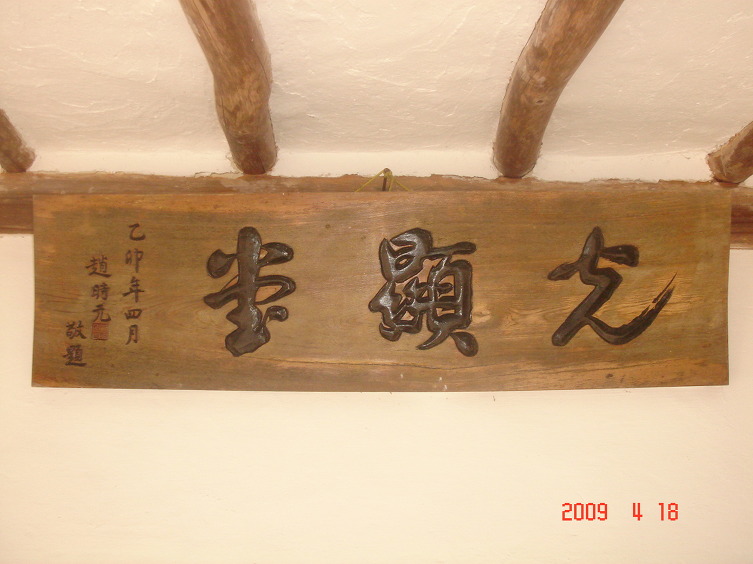 光顯堂
乙卯年四月
趙時元
敬題
2009 4 18